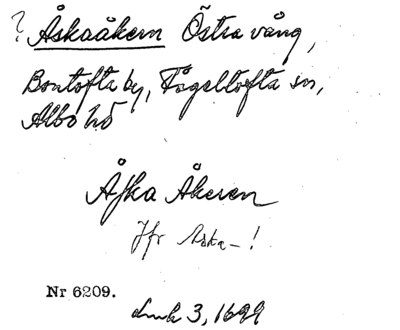 ? Åskaåkern Östra vång,
Bontofta by, Fågeltofta sn,
Albo hd
Åska Åkeren
Jfr Aska-!
Nr 6209.
Lmk 3, 1699